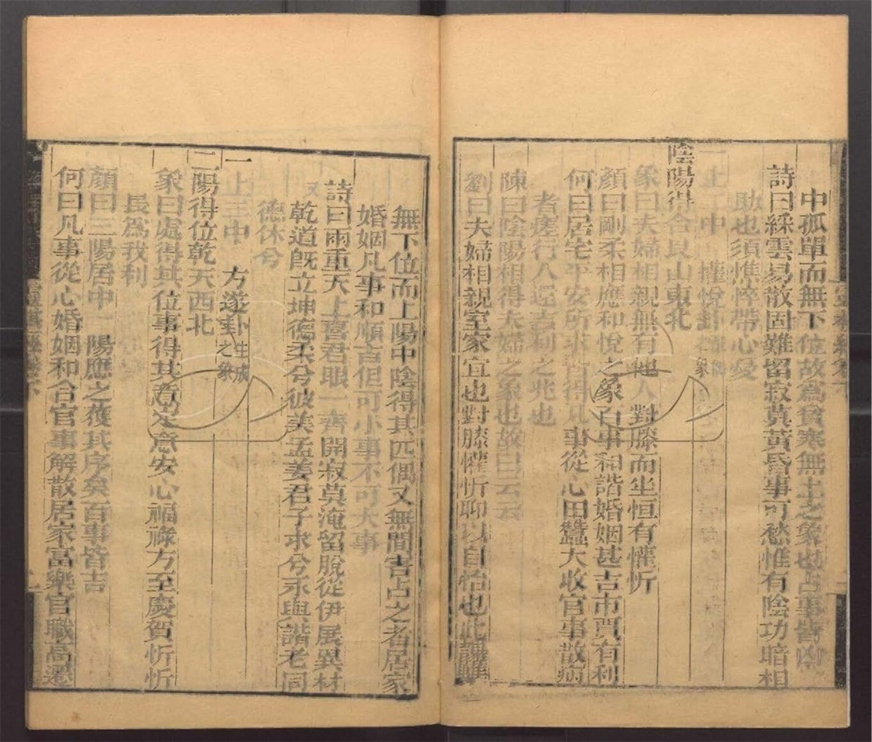 中孤單而無下位故為貧寒無土之象也占事皆凶
詩曰綵雲易散固難留寂莫黃昏事可愁惟有陰功暗相
助也須憔悴帶心憂
一上二中 懽悅卦 之象
陰陽得合艮山東北
象曰夫婦相親無有他人對膝而坐恒有懽忻
顏曰剛柔相應和悅之象百事和諧婚姻甚吉市賈有利
何曰居宅平安所求皆得凡事從心田蠶大收官事散病
者痊行人還吉利之兆也
陳曰陰陽相得夫婦之象也故曰云云
劉曰夫婦相親室家宜也對膝懽忻聊以自怡也此課雖
無下位而上陽中陰得其匹偶又無間害占之者居家
婚姻凡事和順吉但可小事不可大事
詩曰兩重天上喜君眼一齊開寂莫淹留脫從伊展異材
又
乾道既立坤德柔兮彼美孟姜君子求兮永與諧老同
德休兮
一上三中 方遂卦 生成之象
二陽得位乾天西北
象曰處得其位事得其意安心福祿方至慶賀忻忻
長為我利
顏曰三陽居中一陽應之獲其序矣百事皆吉
何曰凡事從心婚姻和合官事解散居家富樂官職高遷